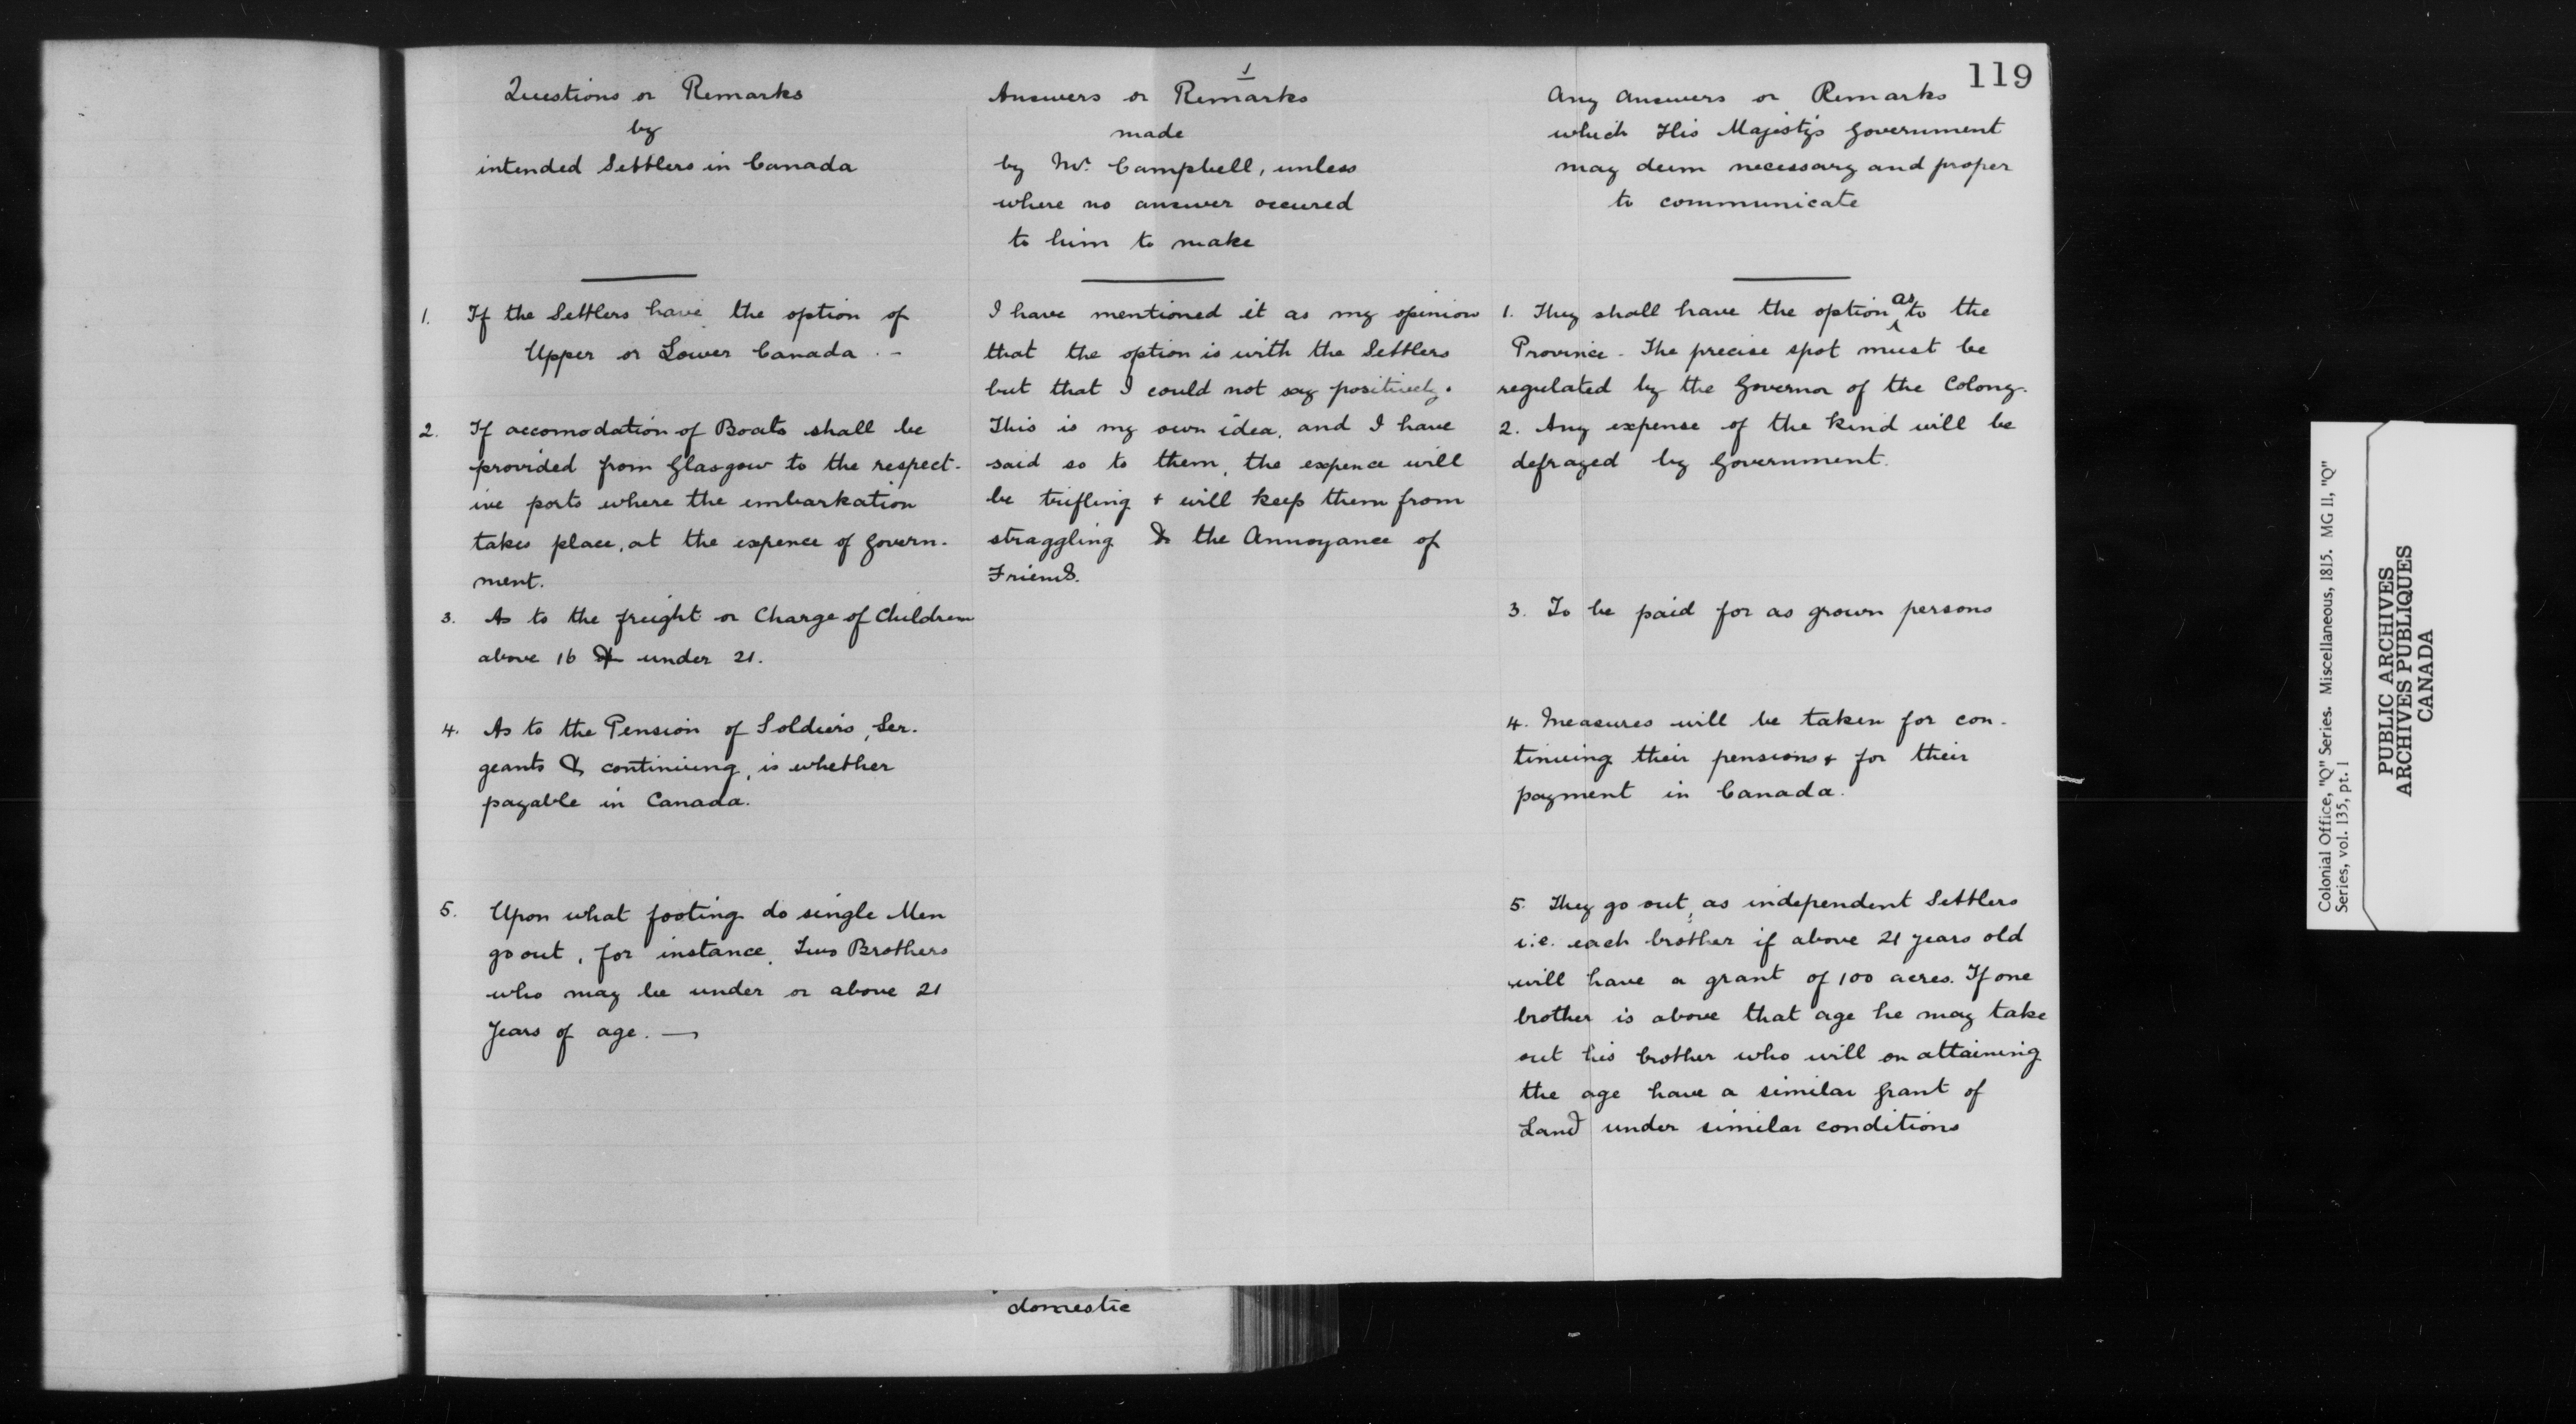 119
1
Questions or Remarks
by
intended Settlers in Canada
1. If the Settlers have the option of
Upper or Lower Canada. -
2. If accomodation of Boats shall be
provided from Glasgow to the respect-
ive ports where the embarkation
takes place, at the expence of Govern-
ment.
3. As to the freight or Charge of Children
above 16 & under 21.
4. As to the Pension of Soldiers, Ser-
geants & continuing, is whether
payable in Canada.
5. Upon what footing do single Men
go out, for instance, Two Brothers
who may be under or above 21
Years of age. —
Answers or Remarks
made
by Mr. Campbell, unless
where no answer occured
to him to make
I have mentioned it as my opinion
that the option is with the Settlers
but that I could not say positively.
This is my own idea, and I have
said so to them, the expence will
be trifling & will keep them from
straggling & the Annoyance of
Friends.
Any Answers or Remarks
which His Majesty's Government
may deem necessary and proper
to communicate
1. They shall have the option as to the
Province - The precise spot must be
regulated by the Governor of the Colony.
2. Any expense of the kind will be
defrayed by Government.
3. To be paid for as grown persons
4. Measures will be taken for con-
tinuing their pensions & for their
payment in Canada.
5. They go out, as independent Settlers
i.e. each brother if above 21 years old
will have a grant of 100 acres. If one
brother is above that age he may take
out his brother who will on attaining
the age have a similar grant of
Land under similar conditions
domestic
Colonial Office, "Q" Series. Miscellaneous, 1815. MG 11, "Q"
Series, vol. 135, pt. 1
PUBLIC ARCHIVES
ARCHIVES PUBLIQUES
CANADA